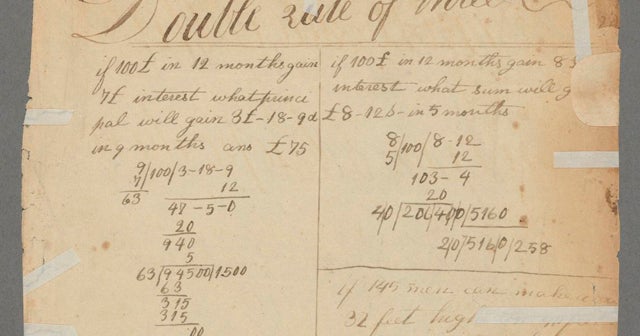 Double Rule of Three
if 100£ in 12 months gain
7£ interest what princi
pal will gain 3£-18-9d
in 9 months ans £75
9/100/3-18-9
7/ 12
63 47-5-0
20
940
5
63/94500/1500
63
315
315
00
if 100£ in 12 months gain 8
interest what sum will g
£8-12s-in 5 months
8/100/8-12
5/ 12
103-4
20
40/206400/5160
20/5160/258
if 145 men can make a
32 feet high